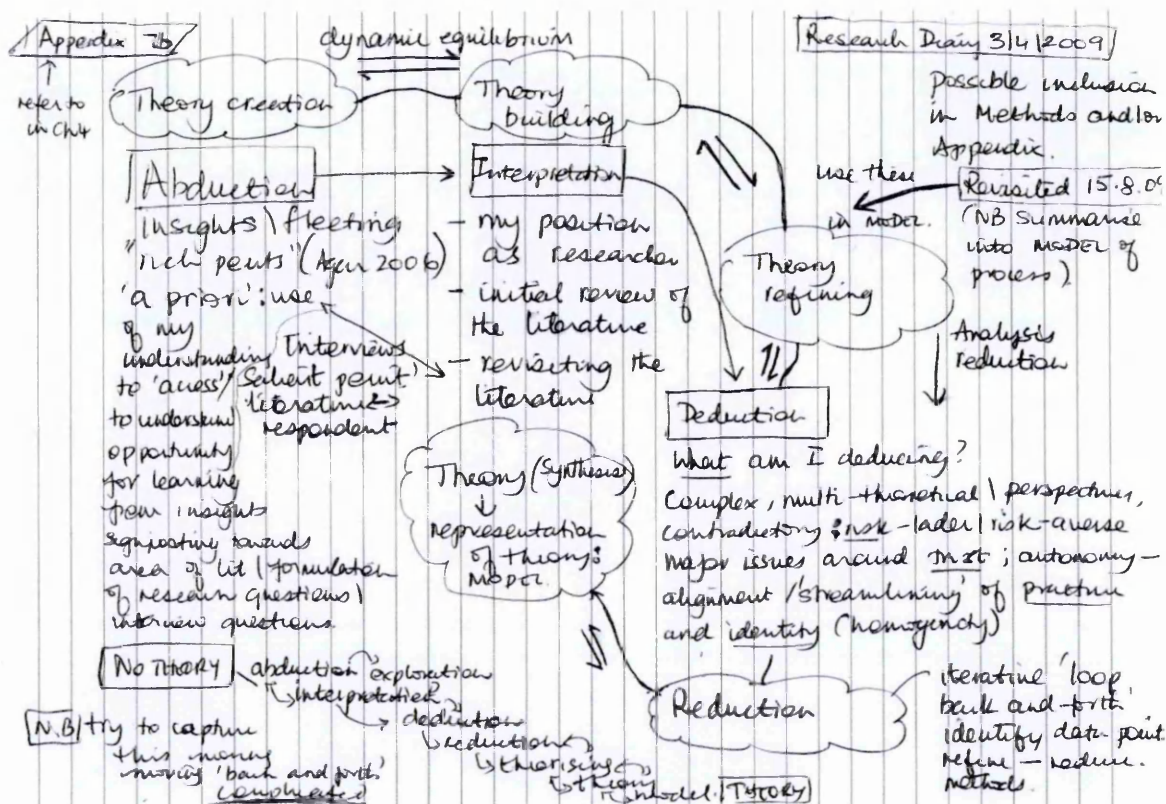 Appendix 7b
refer to
in Ch4
dynamic equilibrium
Research Diary 3/4/2009
possible inclusion
in Methods and/or
Appendix.
Revisited 15.8.09
(NB Summarise
into MODEL of
process)
use these
in MODEL.
Theory creation
Theory
building
Theory
refining
Analysis
reduction
Abduction
insights \ fleeting
"rich points" (Agar 2006)
'a priori': use
of my
understanding
to 'access'/
to understand
opportunity
for learning
from insights
signposting towards
area of lit \ formulation
of research questions \
interview questions.
Interviews
'Salient point'
literature ↔
respondent
Interpretation
- my position
as researcher
- initial review of
the literature
- revisiting the
literature
Deduction
What am I deducing?
Complex, multi-theoretical \ perspectives,
contradictory: risk-laden / risk-averse
major issues around trust; autonomy-
alignment / 'streamlining' of practice
and identity (homogeneity)
Theory (Synthesis)
representation
of theory:
MODEL.
Reduction
iterative 'loop'
back and forth
identify data point
refine - reduce.
methods.
NO THEORY
abduction exploration
interpretation?
deduction
reduction
theorising
theory
model. THEORY
N.B/ try to capture
this
moving 'back and forth'
complicated